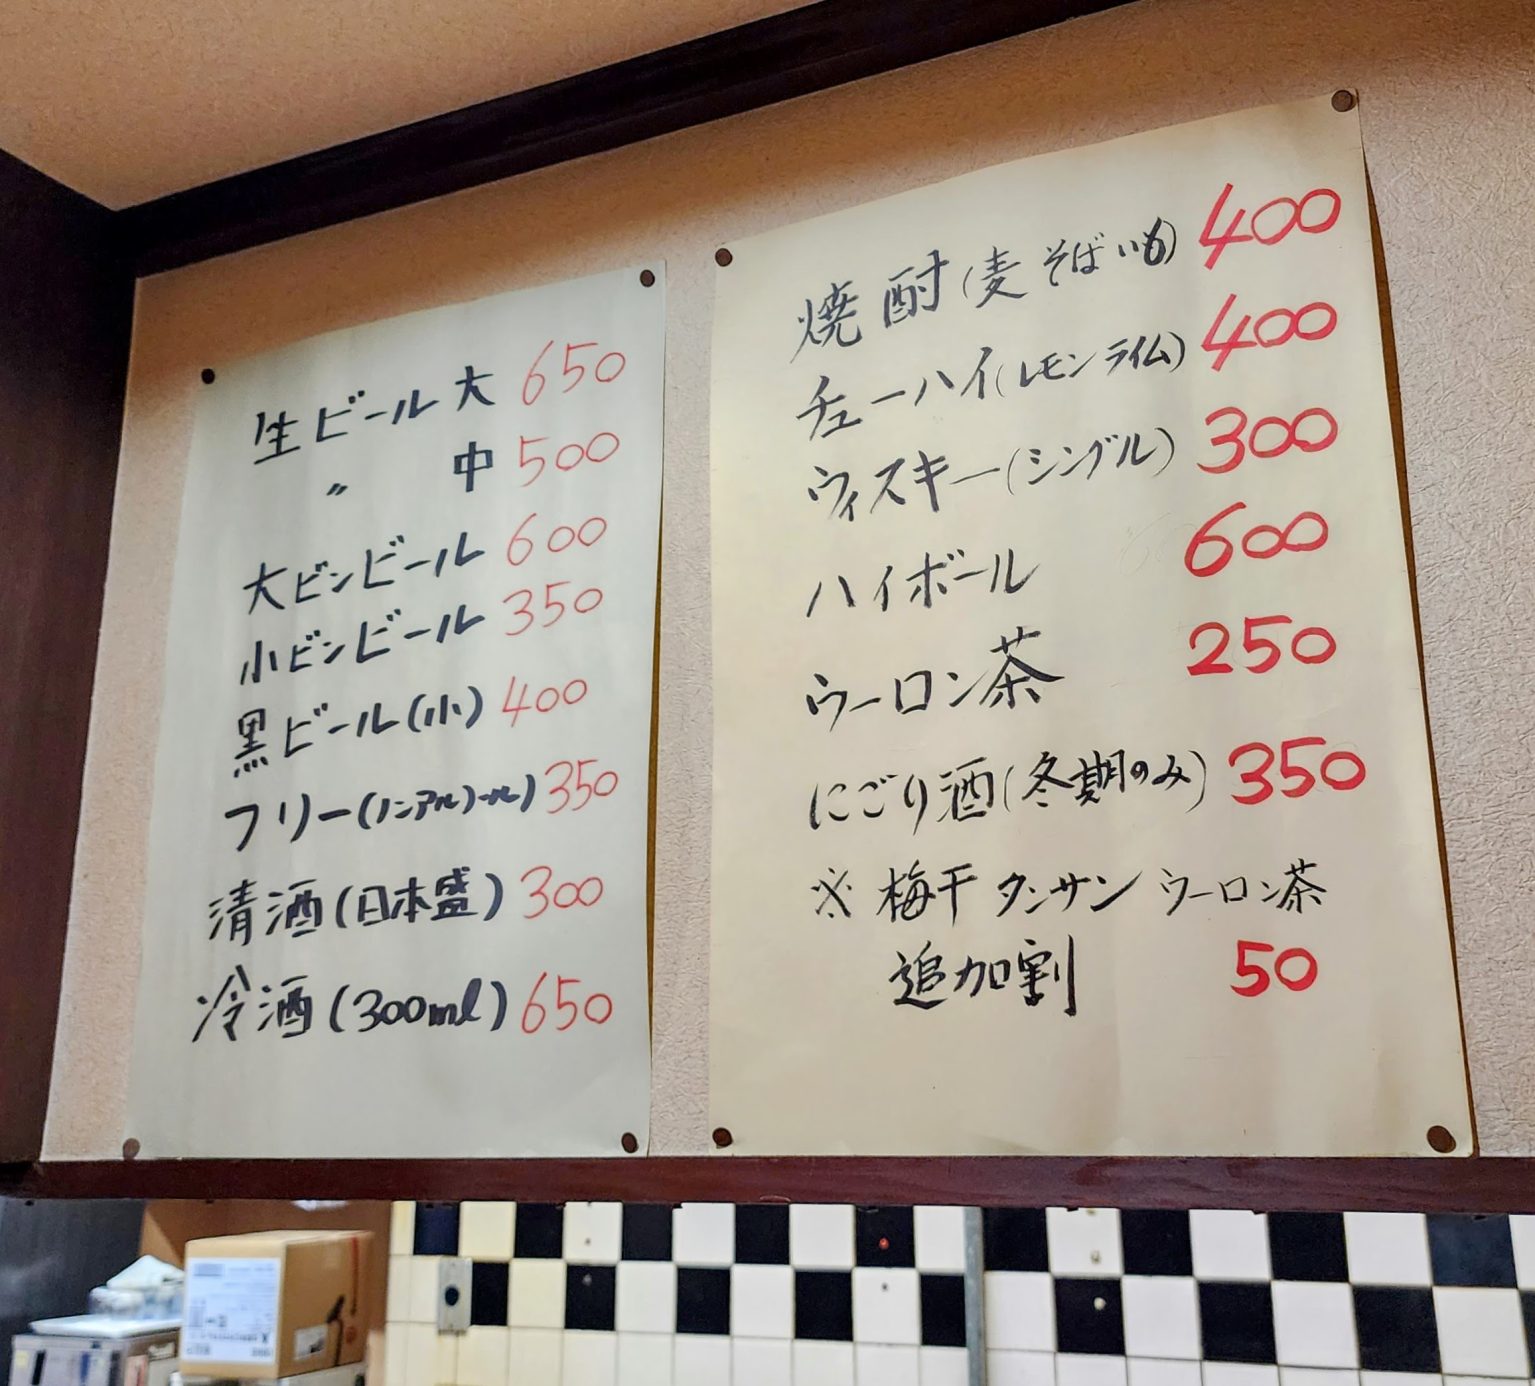 生ビール 大 650
〃 中 500
大ビンビール 600
小ビンビール 350
黒ビール(小) 400
フリー(ノンアルコール) 350
清酒(日本盛) 300
冷酒(300ml) 650
焼酎(麦 そば いも) 400
チューハイ(レモン ライム) 400
ウィスキー(シングル) 300
ハイボール 600
ウーロン茶 250
にごり酒(冬期のみ) 350
※ 梅干 タンサン ウーロン茶
追加割 50